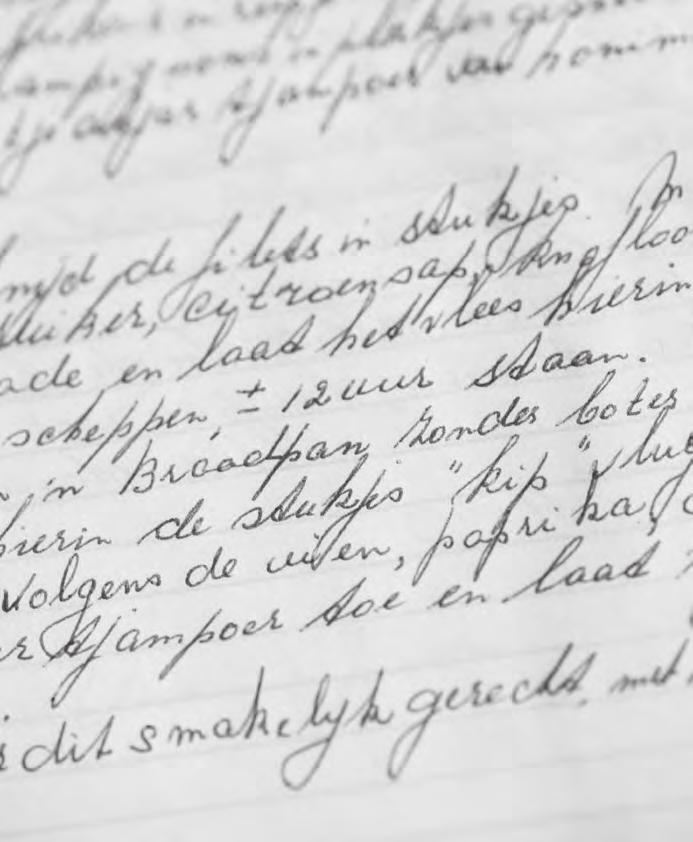 in plakjes
tjampoer van
de filets in stukjes. M
suiker, citroensap, knofloo
ade en laat het vlees hierin
scheppen, ± 12 uur staan.
'n Braadpan zonder boter
hierin de stukjes "kip" vlug
volgens de uien, paprika,
er tjampoer toe en laat
dit smakelijk gerecht, met